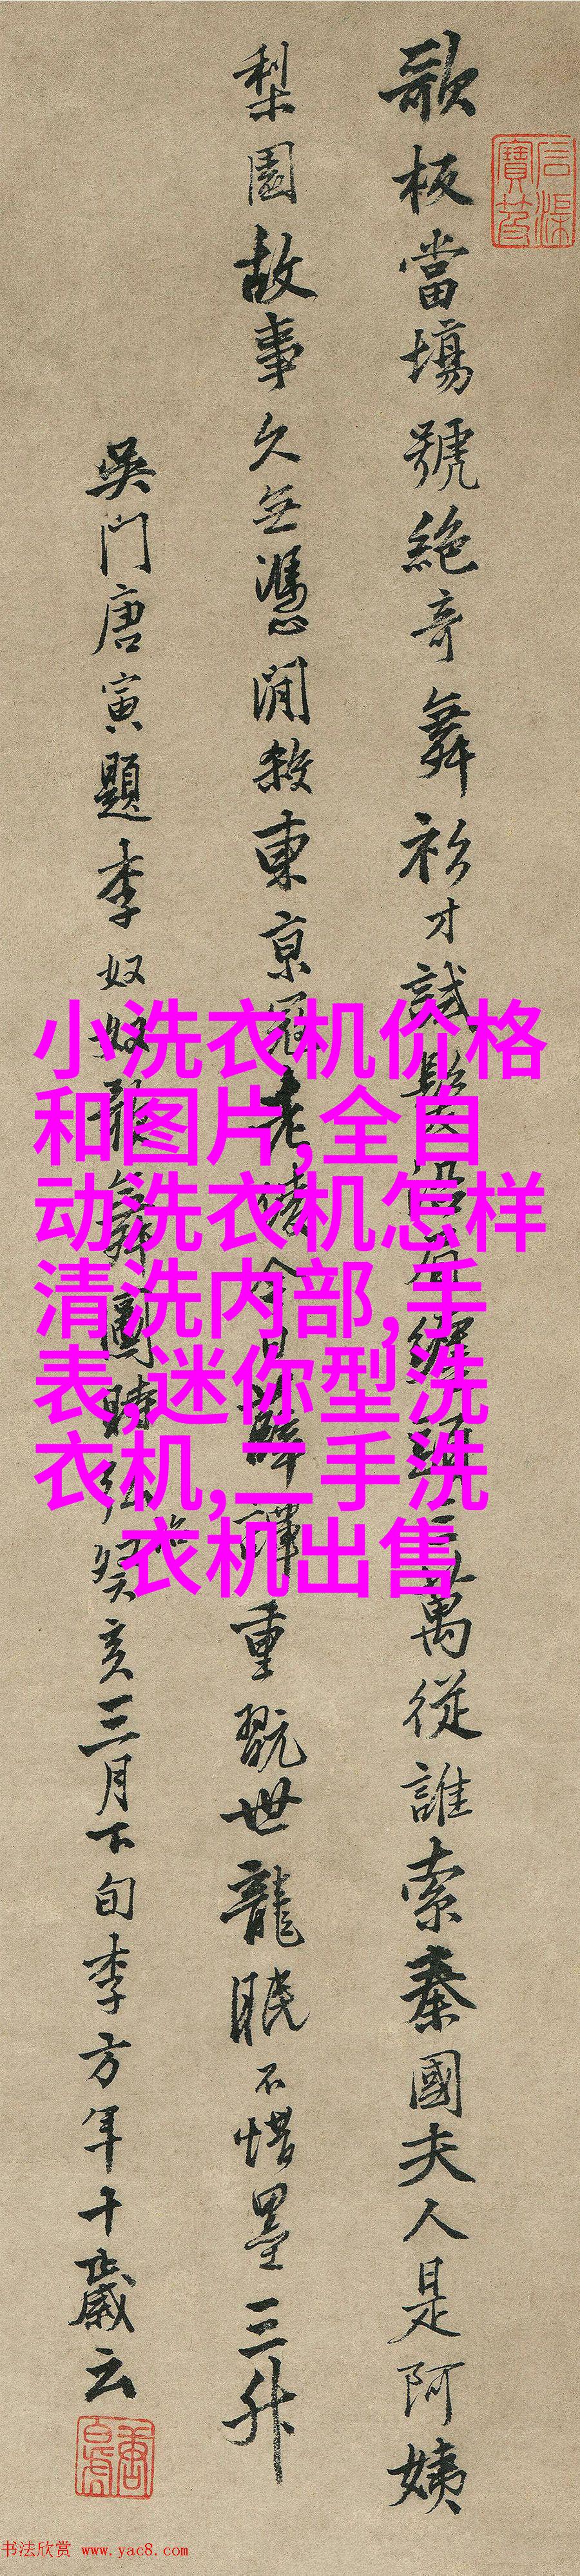 歌板當場號絕奇舞衫才試髮
萬從誰索秦國夫人是阿姨
梨園故事久無憑閒殺東京
老
重翫世龍眠不惜墨三升
吳門唐寅題李奴奴歌舞圖時弘治癸亥三月下旬李方年十歲云
小洗衣机价格
和图片,全自
动洗衣机怎样
清洗内部,手
表,迷你型洗
衣机,二手洗
衣机出售
书法欣赏 www.yac8.com